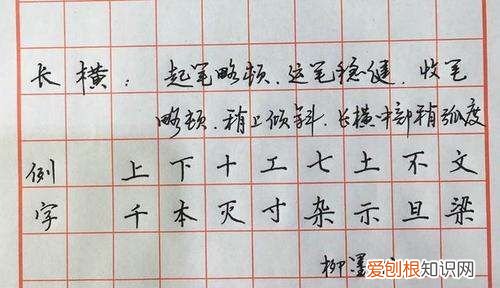 长横：起笔略顿，运笔稳健，收笔
略顿，稍上倾斜，长横中部稍弧度
例 上下十工七土不文
字 千本灭寸杂示旦梁
柳墨
爱刨根知识网
www.baogen.com